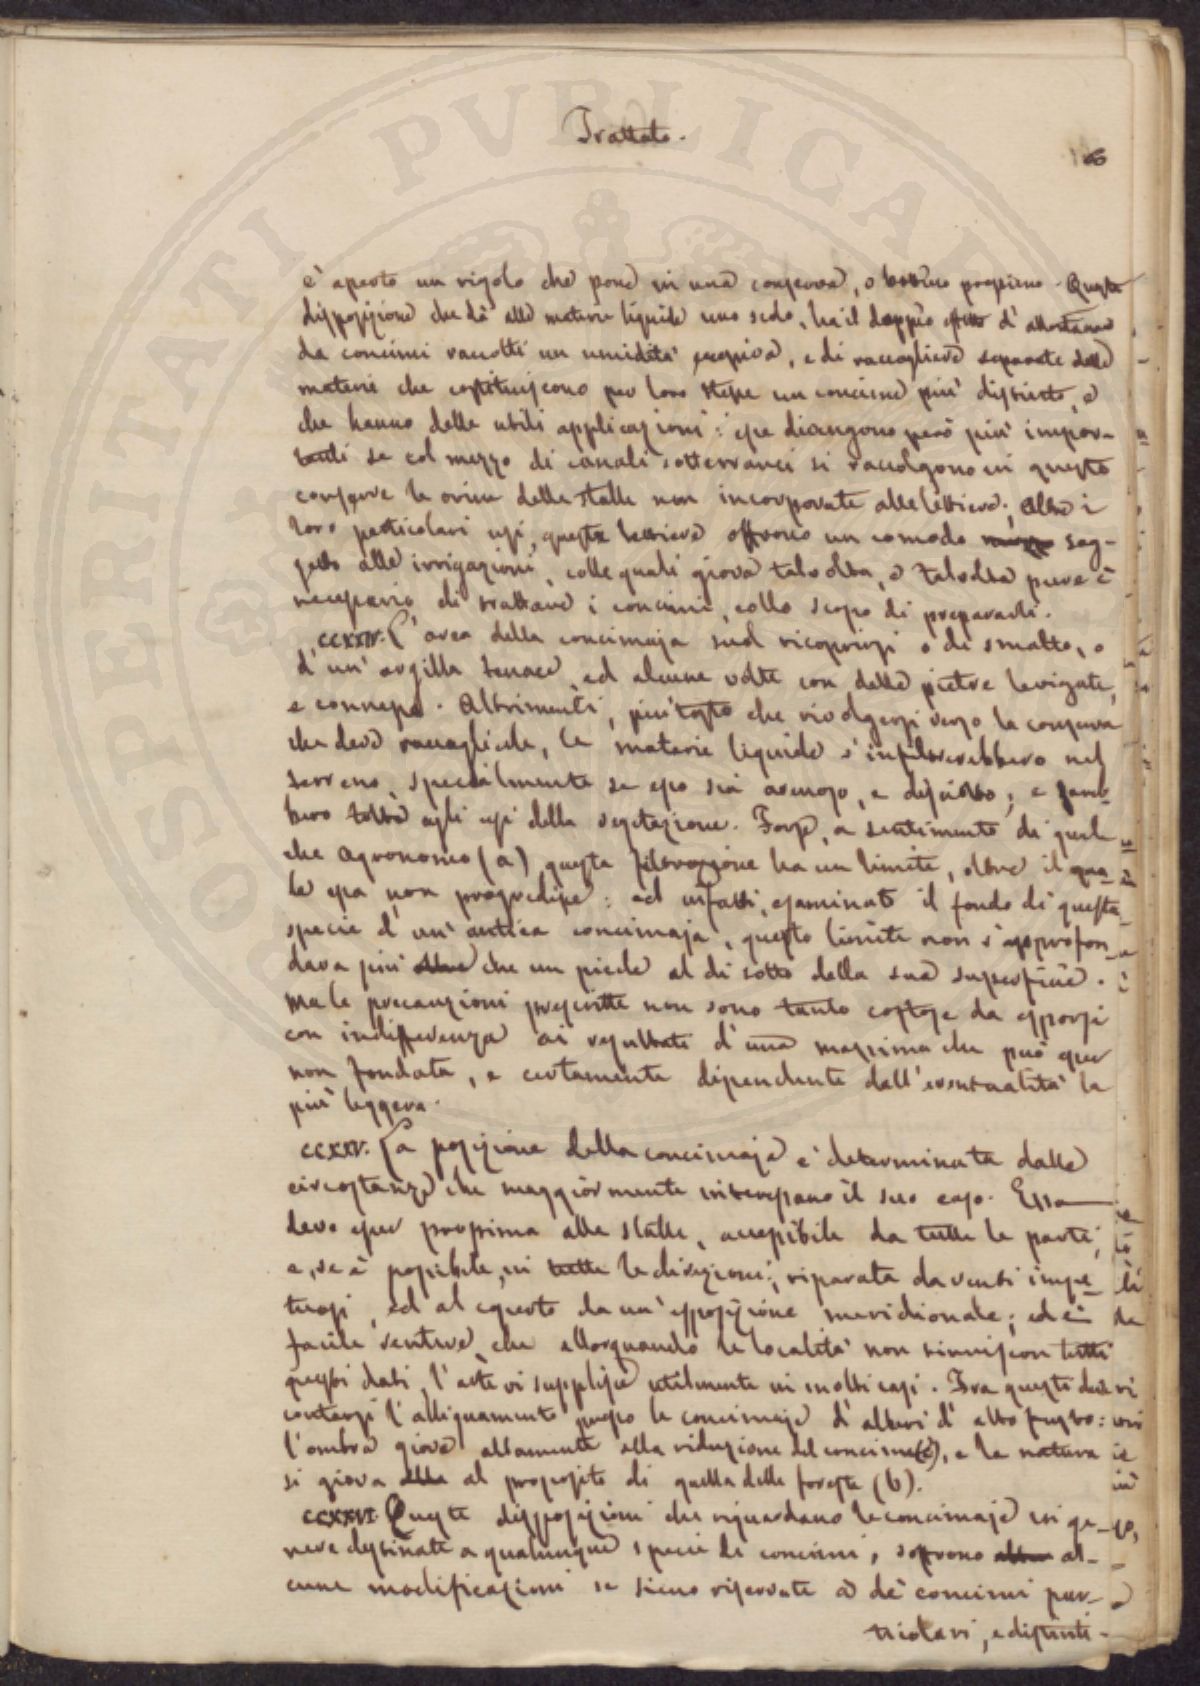 Trattato.
è aperto un rigolo che pone in una conserva, o bottino prossimo. Queste
disposizione che dà alle materie liquide uno scolo, ha il doppio effetto d'allontanare
da concimi raccolti un umidità nociva, e di raccogliere separate delle
materie che costituiscono per loro stesse un concime più distinto, e
che hanno delle utili applicazioni: esse divengono però più impor-
tanti se col mezzo di canali sotterranei si raccolgono in queste
conserve le orine delle stalle non incorporate alle lettiere; Oltre i
loro particolari usi, queste offrono un comodo sog-
getto alle irrigazioni, colle quali giova talvolta, e talvolta pure è
necessario, di trattare i concimi, collo scopo di prepararli.
CCXXIV. L'area della concimaja suol ricoprirsi o di smalto, o
d'un'argilla tenace, ed alcune volte con delle pietre levigate,
e connesse. Altrimenti, piuttosto che rivolgersi verso la conserva
che deve raccoglierle, le materie liquide s'infiltrerebbero nel
terreno, specialmente se esso sia arenoso, e disciolto; e sareb-
bero tolte agli usi della vegetazione. Forse, a sentimento di qual-
che Agronomo (a) questa filtrazione ha un limite, oltre il qua-
le essa non progredisce: ed infatti, esaminato il fondo di questa
specie d'un'antica concimaja, questo limite non s'approfon-
dava più che un piede al di sotto della sua superficie.
Ma le precauzioni prescritte non sono tanto costose da esporsi
con indifferenza ai resultati d'una massima che può esser
non fondata, e certamente dipendente dall'eventualità la
più leggera.
CCXXV. La posizione della concimaja è determinata dalle
circostanze che maggiormente interessano il suo caso. Essa
deve esser prossima alle stalle, accessibile da tutte le parti,
e, se è possibile, in tutte le direzioni; riparata da venti impe-
tuosi, ed al coperto da un'esposizione meridionale; ed è
facile sentire, che allorquando le località non riuniscon tutti
questi dati, l'arte vi supplisce utilmente in molti casi. Fra queste deve
contarsi l'allignamento presso le concimaje d'alberi d'alto fusto:
l'ombra giova altamente alla riduzione del concime, e la natura
si giova al proposito di quella delle foreste (b).
CCXXVI. Queste disposizioni che riguardano le concimaje in ge-
nere destinate a qualunque specie di concimi, soffrono al-
cune modificazioni se sieno riservate a de' concimi par-
ticolari, e distinti.